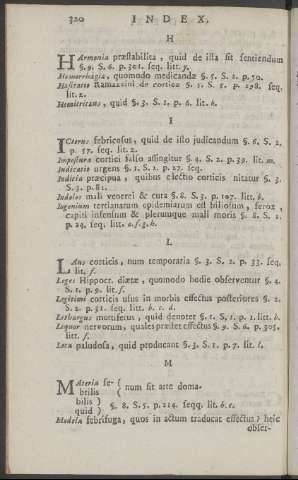 320 INDEX.
H
HArmonia præstabilita, quid de illa sit sentiendum
§. 9. S. 6. p. 301. seq. litt. y.
Hæmorrhagia, quomodo medicandæ §. 5. S. 2. p. 50.
Hæsitatio Ramazzini de cortice §. 5. S. 5. p. 198. seq.
lit. z.
Hemitritæus, quid §. 3. S. 1. p. 6. lit. h.
I
ICterus febricosus, quid de isto judicandum §. 6. S. 2.
p. 57. seq. lit. z.
Impostura cortici falso affingitur §. 4. S. 2. p. 39. lit. m.
Indicatio urgens §. 1. S. 2. p. 27. seq.
Indicia præcipua, quibus electio corticis nitatur §. 3.
S. 3. p. 81.
Indoles mali venerei & cura §. 8. S. 3. p. 107. litt. h.
Ingenium tertianarum epidemiarum est biliosum, ferox,
capiti infensum & plerumque mali moris §. 8. S. 1.
p. 24. seq. litt. e. f. g. h.
L
LAus corticis, num temporaria §. 3. S. 2. p. 33. seq.
lit. f.
Leges Hippocr. diætæ, quomodo hodie observentur §. 4.
S. 1. p. 9. lit. f.
Legitimi corticis usus in morbis effectus posteriores §. 2.
S. 2. p. 31. seq. litt. b. c. d.
Lethargus mortiferus, quid denotet §. 1. S. 1. p. 2. litt. b.
Liquor nervorum, quales præstet effectus §. 9. S. 6. p. 305.
litt. f.
Loca paludosa, quid producant §. 3. S. 1. p. 7. lit. l.
M
MAteria fe- { num sit arte doma-
brilis {
bilis }
quid } §. 8. S. 5. p. 214. seqq. lit. b. c.
Medela febrifuga, quos in actum traducat effectus? heic
obser-